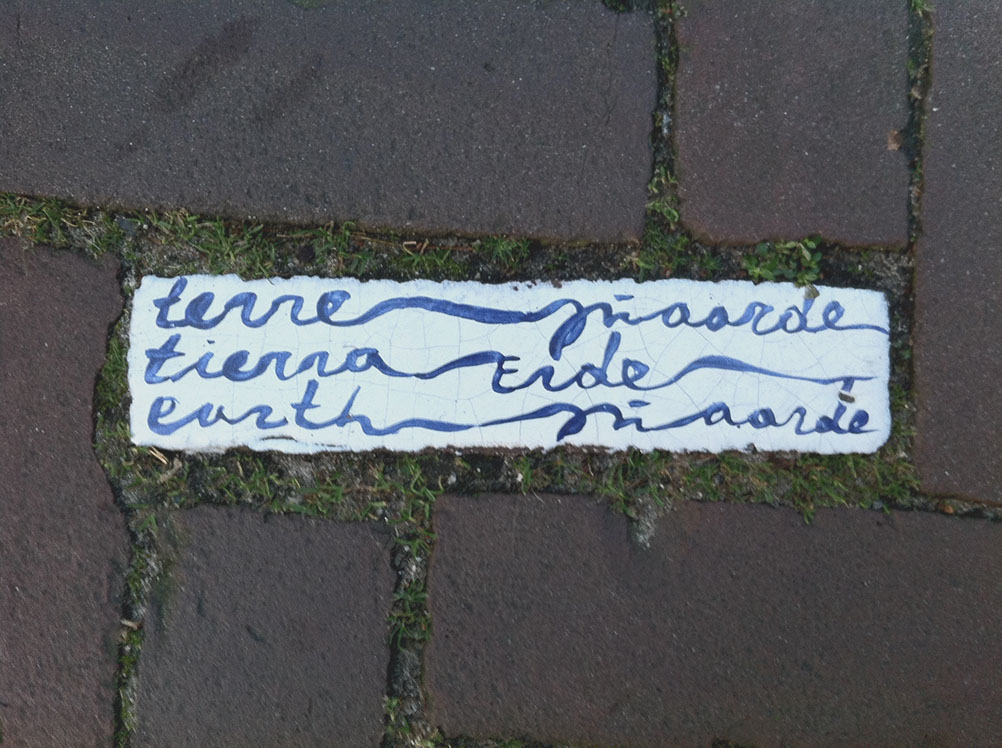 terre aarde
tierra Erde
earth aarde